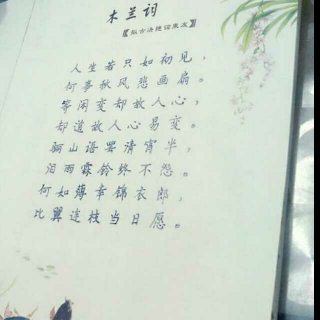 木兰词
《拟古决绝词柬友》
人生若只如初见，
何事秋风悲画扇。
等闲变却故人心，
却道故人心易变。
骊山语罢清宵半，
泪雨霖铃终不怨。
何如薄幸锦衣郎，
比翼连枝当日愿。